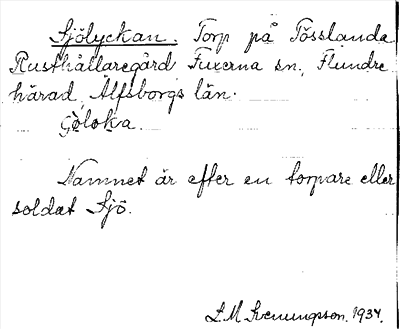 Sjölyckan. Torp på Tösslanda
Rusthållaregård Fuxerna sn, Flundre
härad, Älfsborgs län.
Namnet är efter en torpare eller
soldat Sjö.
L.M. Svenungsson. 1934.